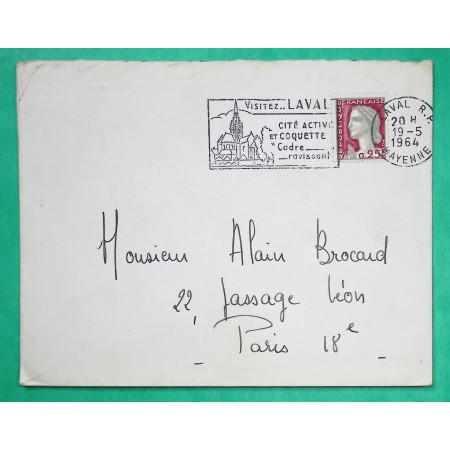 VISITEZ.. LAVAL
CITÉ ACTIVE
ET COQUETTE
Cadre
ravissant
RÉPUBLIQUE FRANÇAISE
0,25
LAVAL R.P.
20 H
19-5
1964
MAYENNE
Monsieur Alain Brocard
22, Passage Léon
Paris 18e